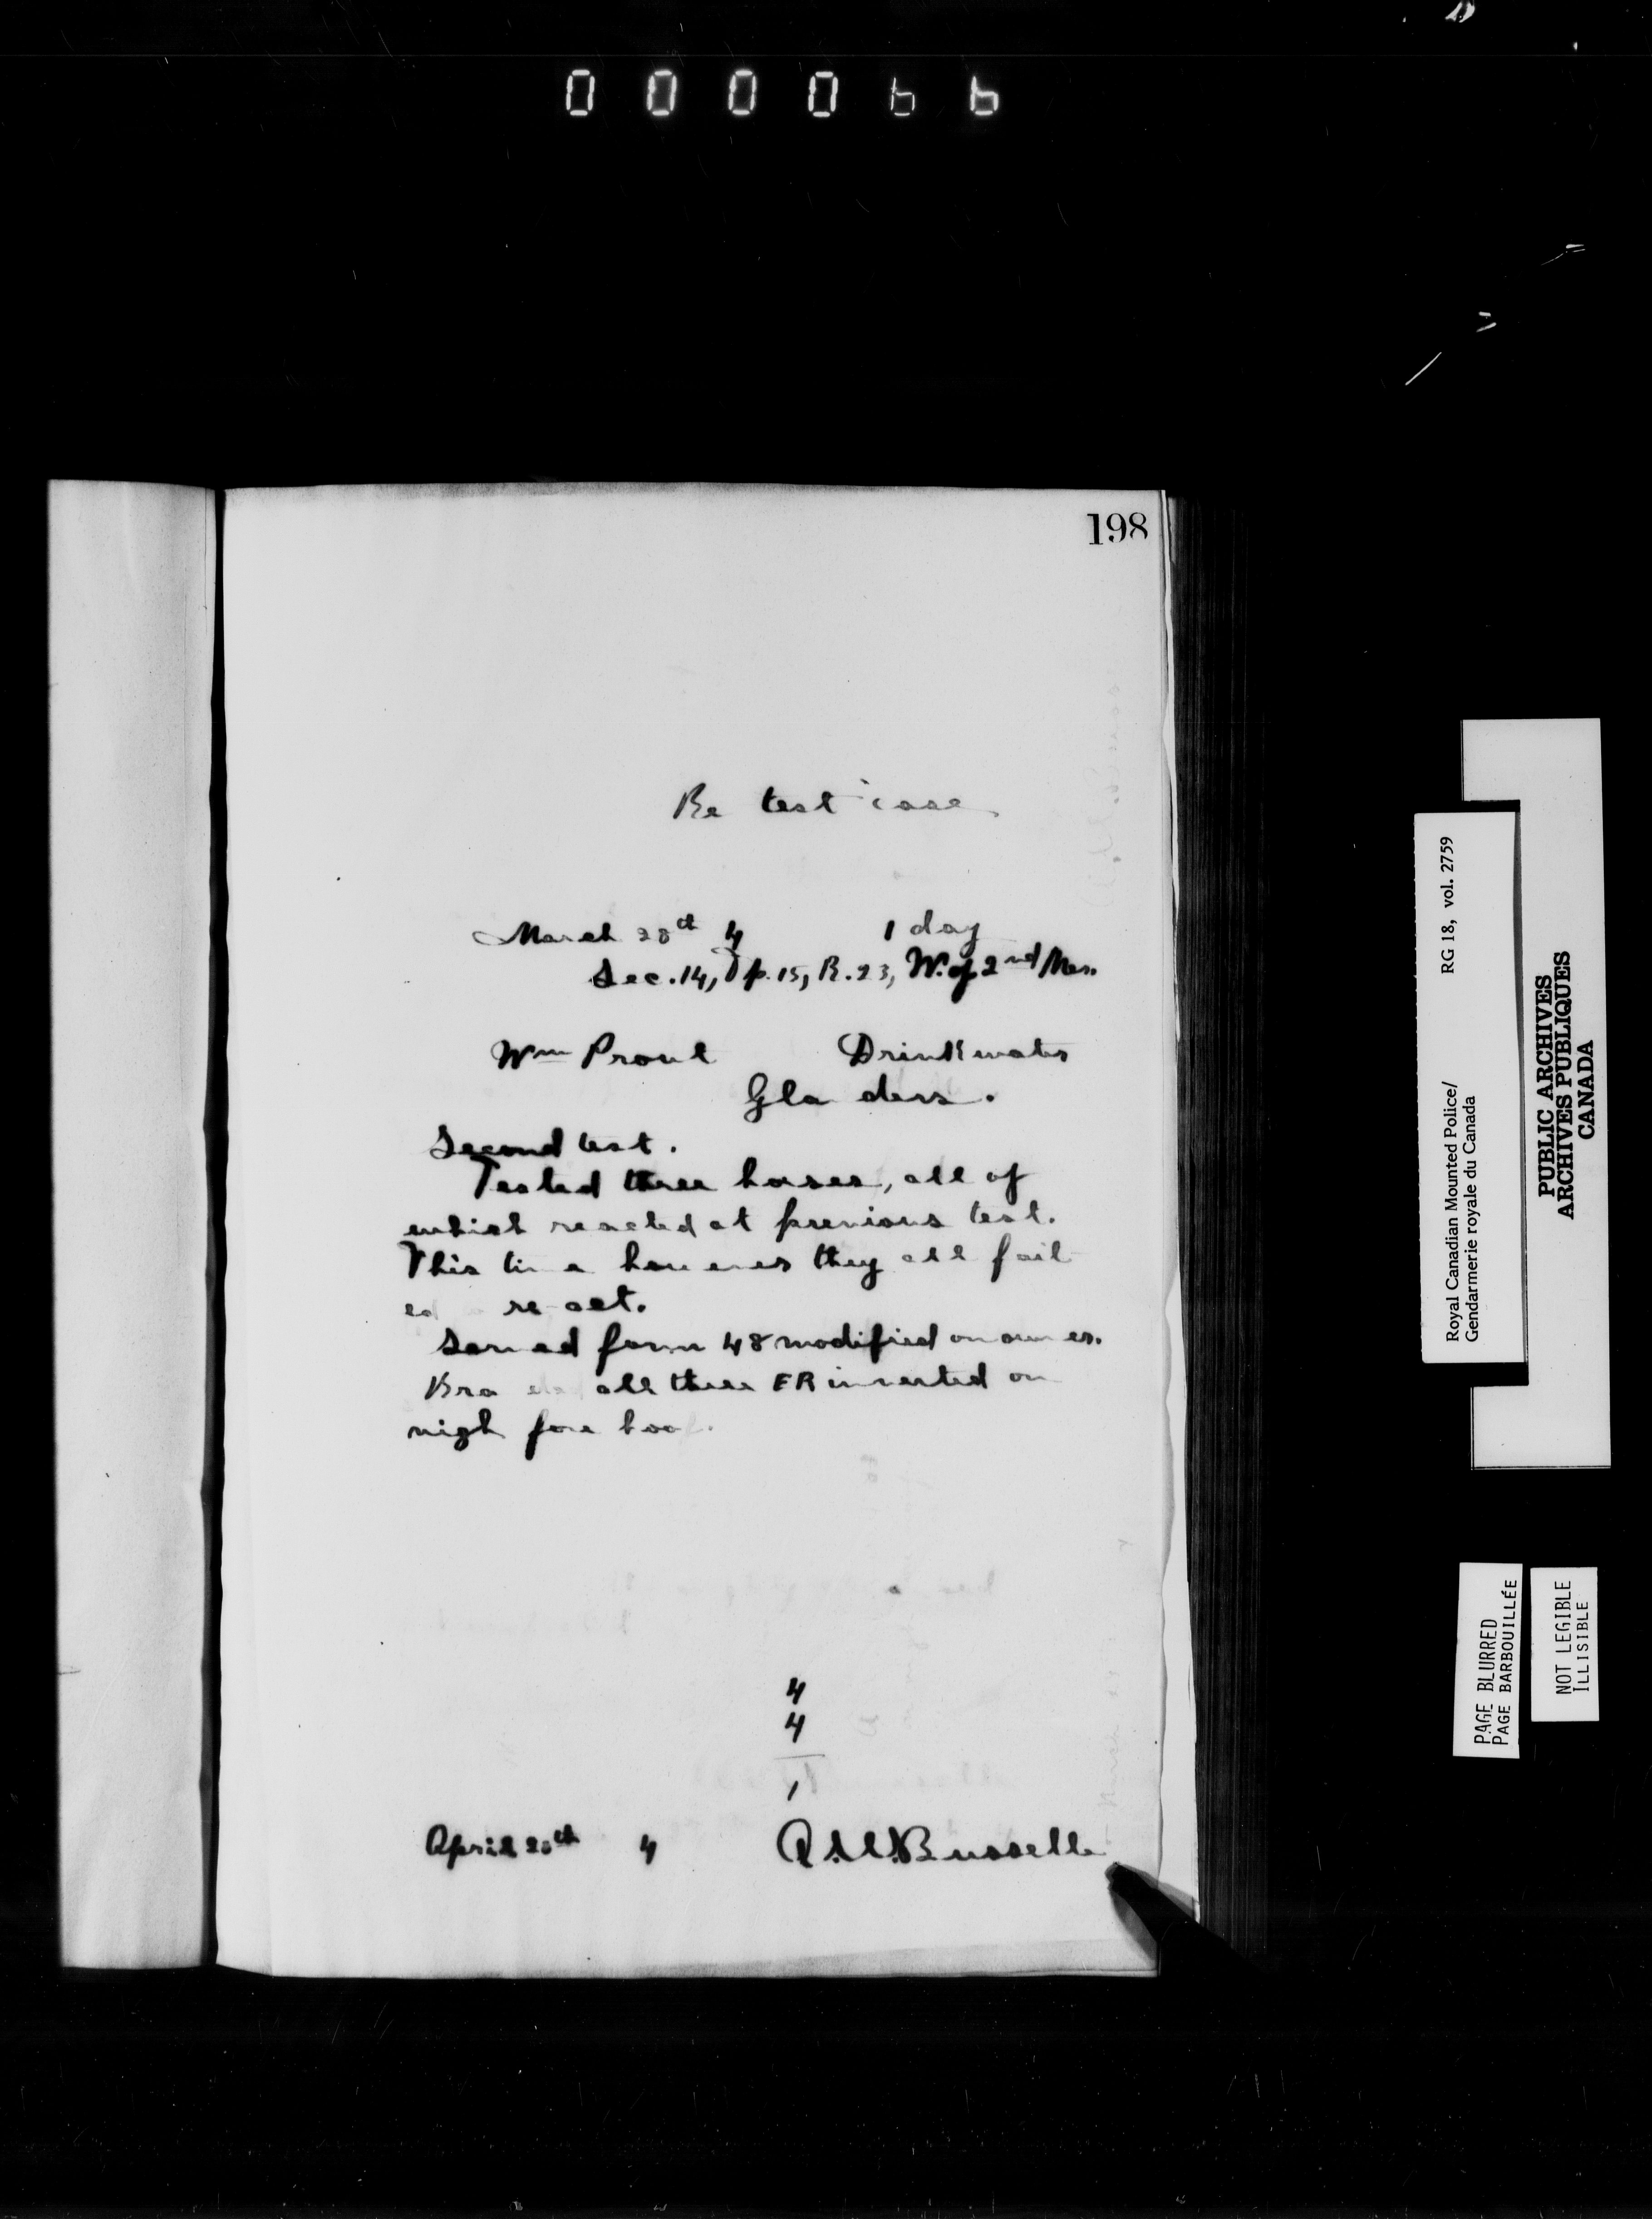 000066
198
Re test case
March 28th 4 1 day
Sec. 14, Tp. 15, R. 23, W. of 2nd Mer.
Wm Prout Drinkwater
Gla ders.
Second test.
Tested three horses, all of
which reacted at previous test.
This time however they all fail
ed re-act.
Served form 48 modified on owner.
Bra all three ER inverted on
nigh fore hoof.
4
4
1
April 20th 4
Royal Canadian Mounted Police/ RG 18, vol. 2759
Gendarmerie royale du Canada
PUBLIC ARCHIVES
ARCHIVES PUBLIQUES
CANADA
PAGE BLURRED
PAGE BARBOUILLÉE
NOT LEGIBLE
ILLISIBLE